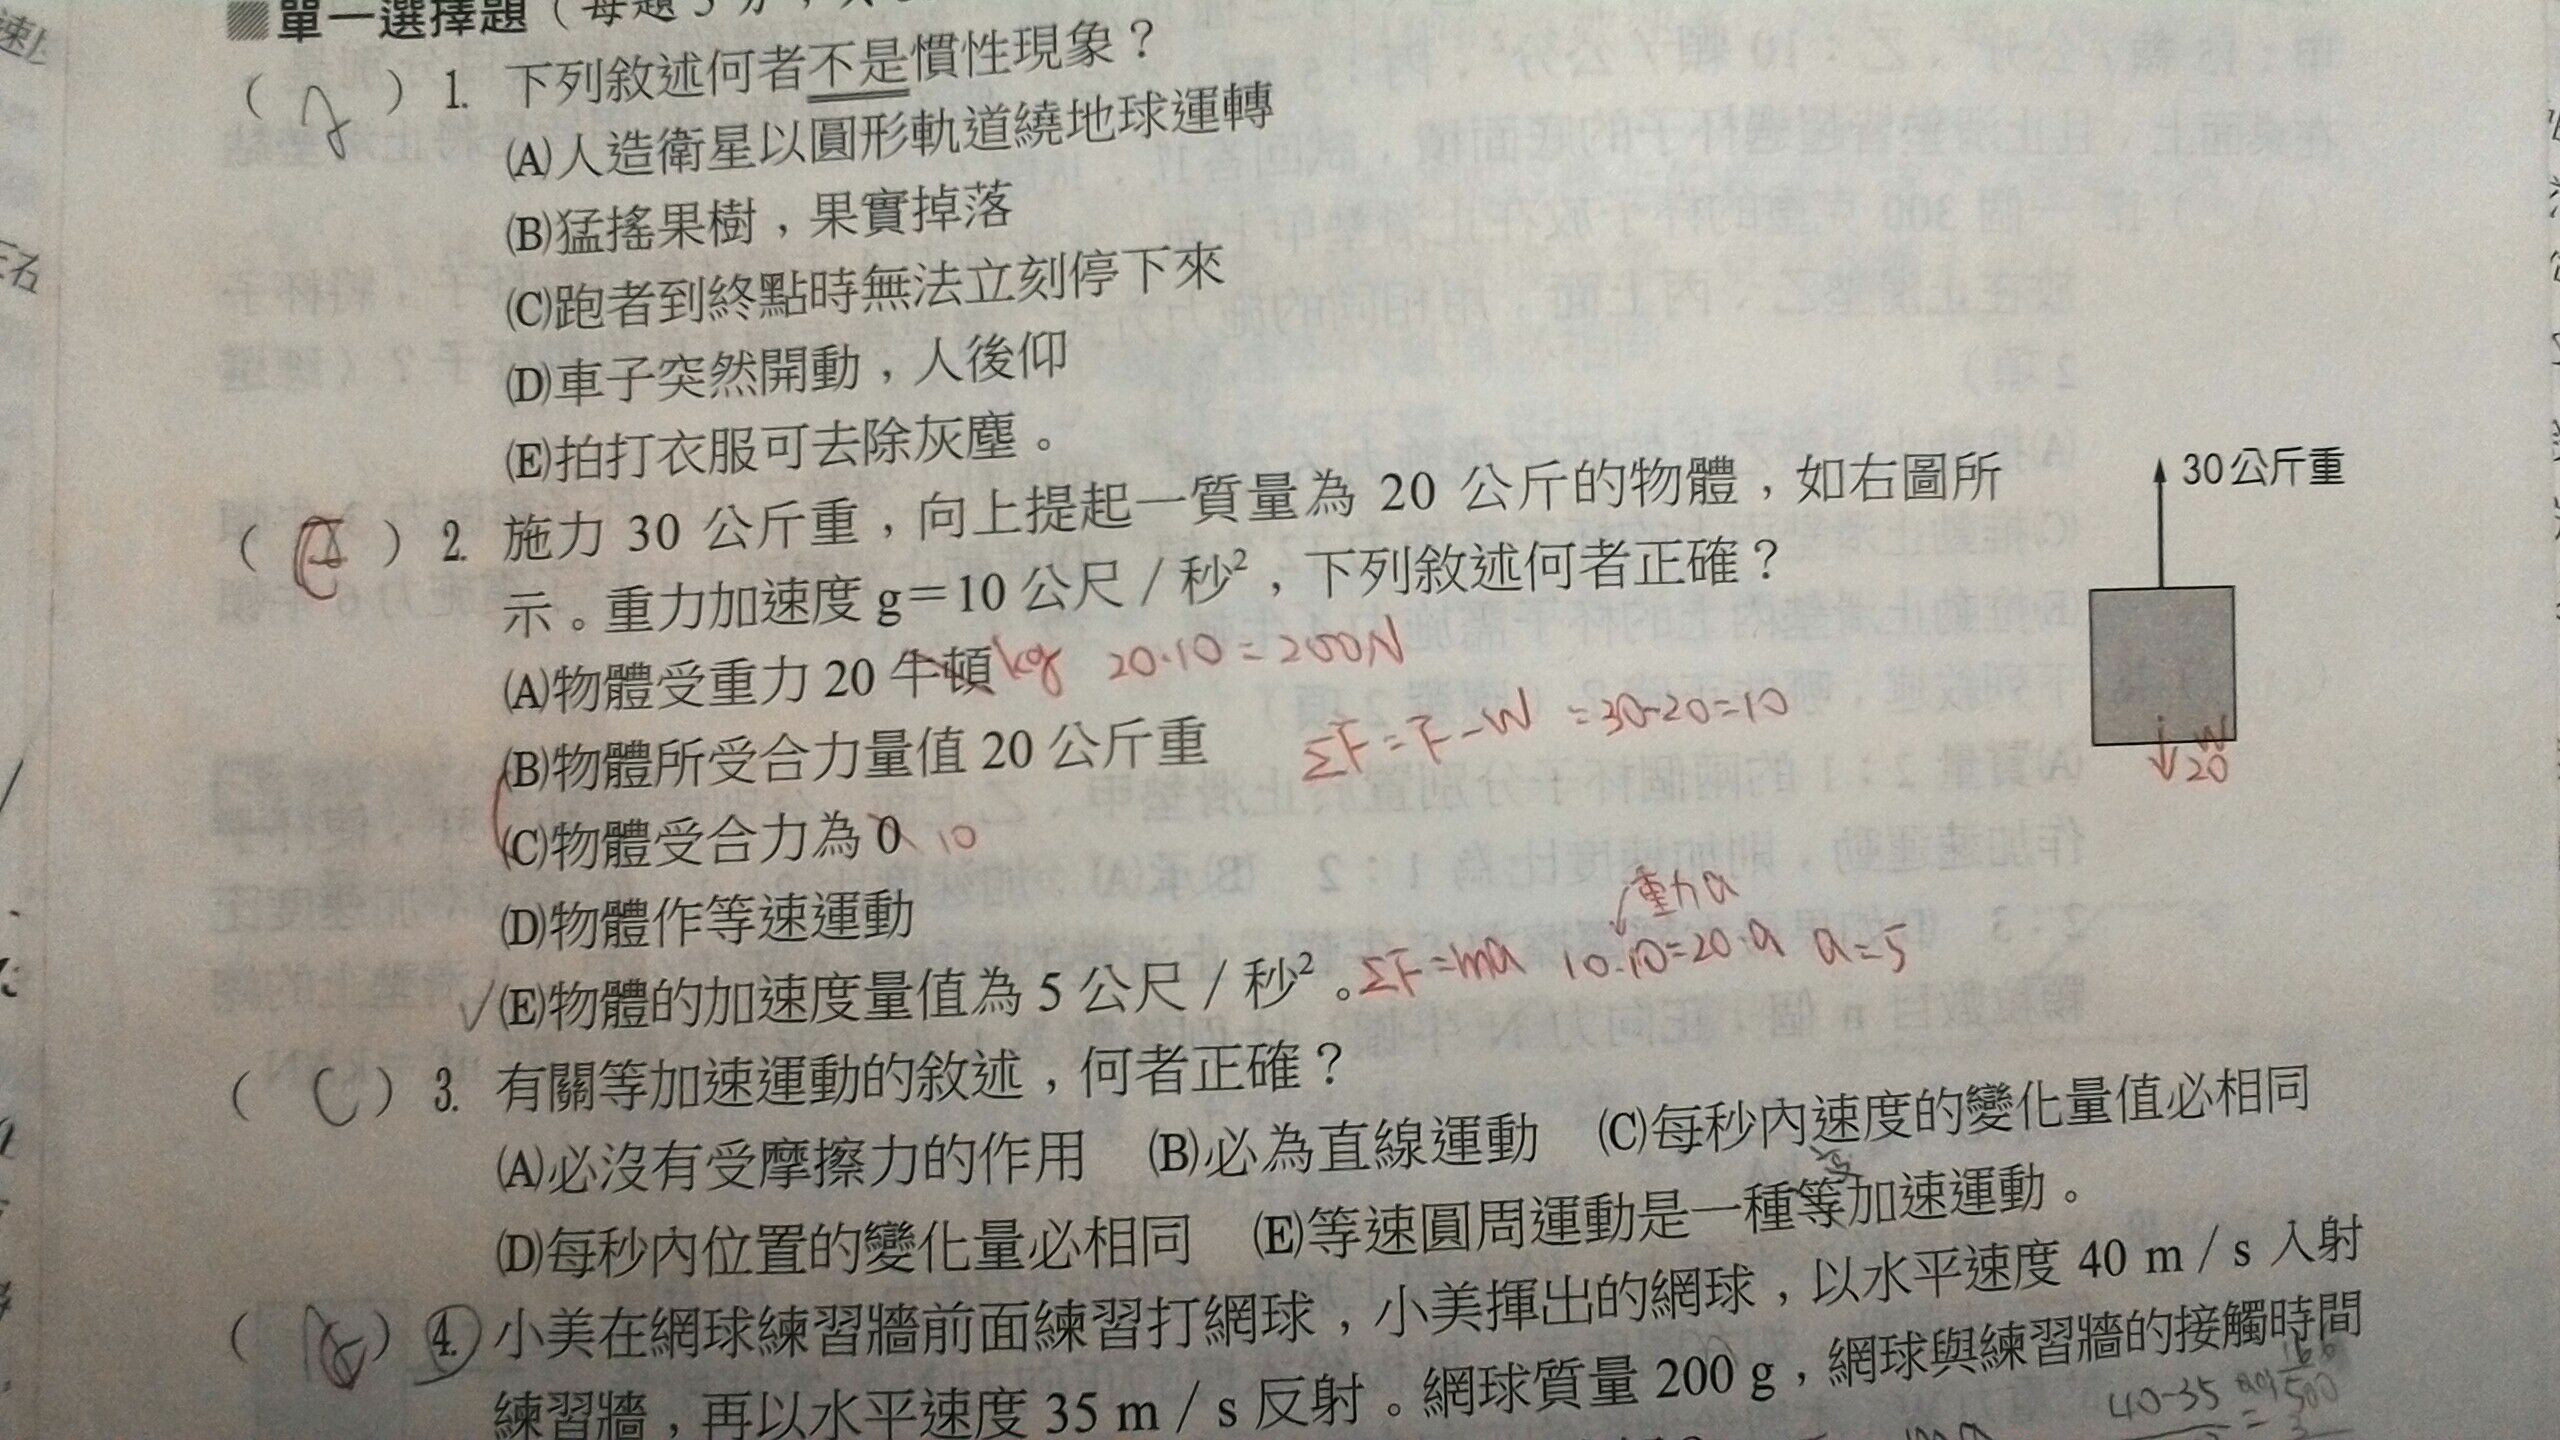 ■單一選擇題（每題5分，
（ ）1. 下列敘述何者不是慣性現象？
(A)人造衛星以圓形軌道繞地球運轉
(B)猛搖果樹，果實掉落
(C)跑者到終點時無法立刻停下來
(D)車子突然開動，人後仰
(E)拍打衣服可去除灰塵。
（ ）2. 施力 30 公斤重，向上提起一質量為 20 公斤的物體，如右圖所
示。重力加速度 g＝10 公尺／秒²，下列敘述何者正確？
30公斤重
(A)物體受重力 20 牛頓 kg 20·10=200N
(B)物體所受合力量值 20 公斤重 ΣF=F-W=30-20=10
W
20
(C)物體受合力為 0 10
(D)物體作等速運動
重力a
✓(E)物體的加速度量值為 5 公尺／秒²。ΣF=ma 10·10=20·a a=5
（ C ）3. 有關等加速運動的敘述，何者正確？
(A)必沒有受摩擦力的作用 (B)必為直線運動 (C)每秒內速度的變化量值必相同
(D)每秒內位置的變化量必相同 (E)等速圓周運動是一種等加速運動。
（ ）4. 小美在網球練習牆前面練習打網球，小美揮出的網球，以水平速度 40 m／s 入射
練習牆，再以水平速度 35 m／s 反射。網球質量 200 g，網球與練習牆的接觸時間
40-35